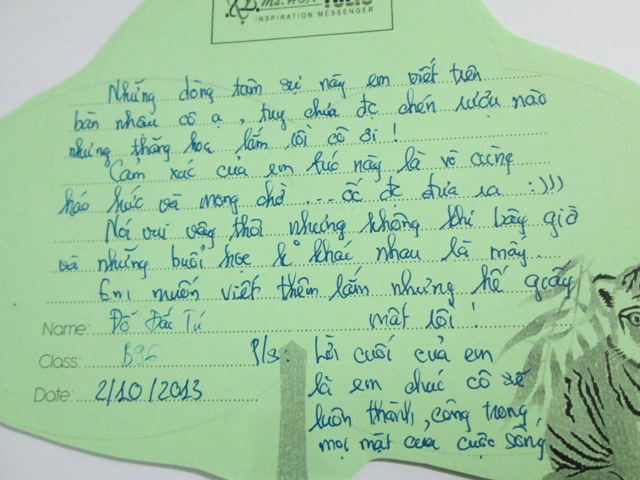 Ms. HOA TOEIC
INSPIRATION MESSENGER
Những dòng tâm sự này em viết trên
bàn nhậu cô ạ, tuy chưa đc chén rượu nào
nhưng thăng hoa lắm rồi cô ơi!
Cảm xúc của em lúc này là vô cùng
háo hức và mong chờ ... ốc đc đưa ra :)))
Nói vui vậy thôi nhưng không khí bây giờ
và những buổi học k khác nhau là mấy..
Em muốn viết thêm lắm nhưng hế giấy
mất rồi!
Name: Đỗ Đắc Tú
Class: B96
Date: 2/10/2013
P/s: Lời cuối của em
là em chúc cô sẽ
luôn thành công trong
mọi mặt của cuộc sống